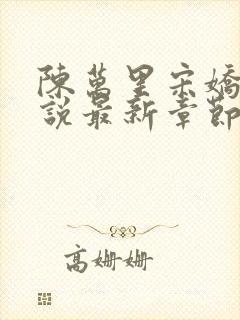 陳萬里宋嬌
說最新章節
高姍姍